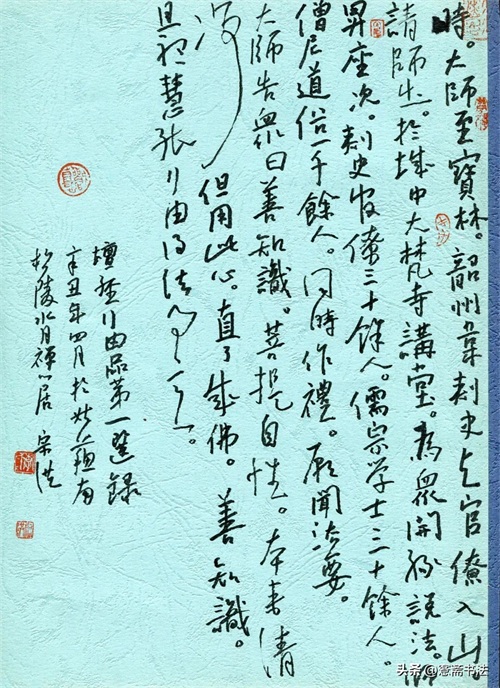 時。大師至寶林。韶州韋刺史与官僚入山。
請師出。於城中大梵寺講堂。為眾開緣說法。師
昇座次。刺史官僚三十餘人。儒宗学士三十餘人。
僧尼道俗一千餘人。同時作禮。願聞法要。
大師告眾曰善知識。菩提自性。本来清
淨 但用此心。直了成佛。善知識。
且聽慧能行由得法事意。
壇經行由品第一選錄
辛丑年四月於姑蘇南
松陵水月禪居 宗洪
头条 @斋书法